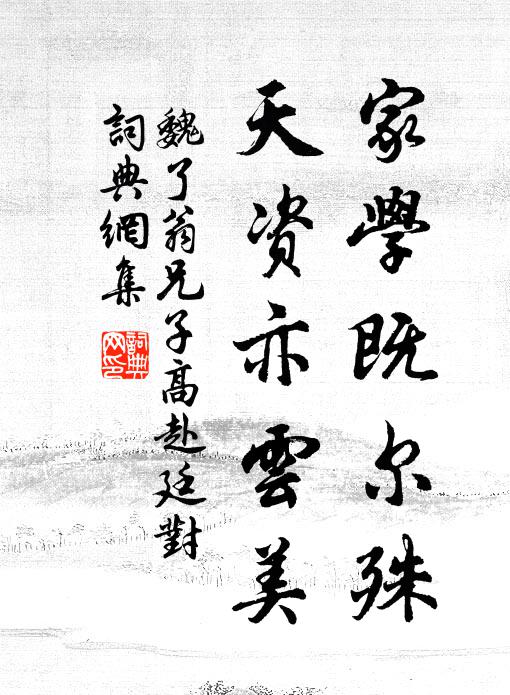 家學既尔殊
天资亦雲美
魏了翁兄子高赴廷對
詞典網集
詞典网印